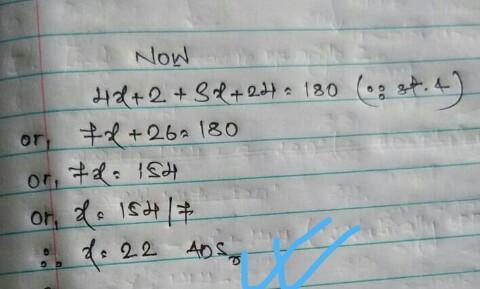 NOW
4x+2 + 3x+24 = 180 (∵ st. 4)
or, 7x + 26 = 180
or, 7x = 154
or, x = 154/7
∴ x = 22 ANS